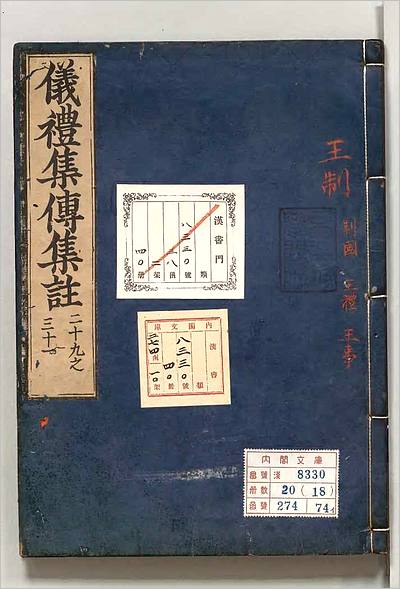 儀禮集傳集註
二十九之
三十一
王制
制國 王禮 王事
漢書門
類
八三三〇號
一八函
二架
四〇册
內閣文庫
漢書
類
八三三〇號
四〇册
架
內閣文庫
番號 漢 8330
册數 20 (18)
函號 274 74